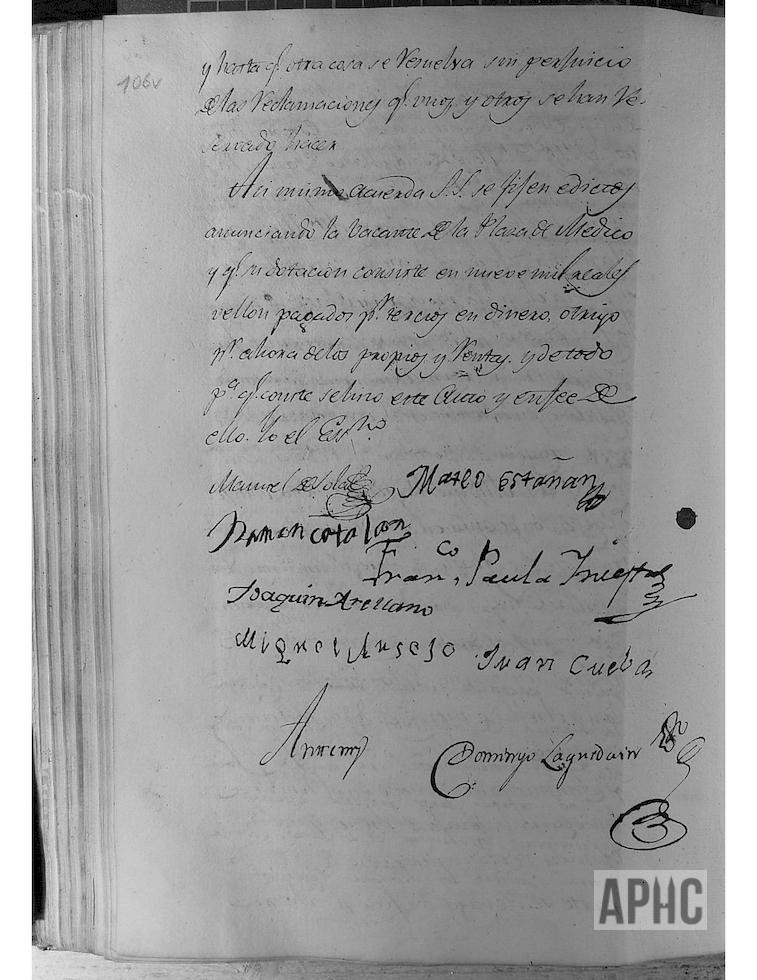 106v
y hasta qe. otra cosa se resuelva sin perjuicio
de las reclamaciones qe. unos y otros se han re-
servado hacer
Asi mismo acuerda S.S. se fijen edictos
anunciando la vacante de la Plaza de Medico
y qe. su dotacion consiste en nueve mil reales
vellon pagados pr. tercios en dinero, o trigo
pr. ahora de los propios y rentas. y de todo
pa. qe. conste se hizo este Auto y en fee de
ello. Yo el Essno.
Manuel de Mateo Estañan
Ramon catalan
Franco. Paula
Joaquin Arellano
Miguel Ansejo Juan Cueba
Ante mi
Domingo
APHC